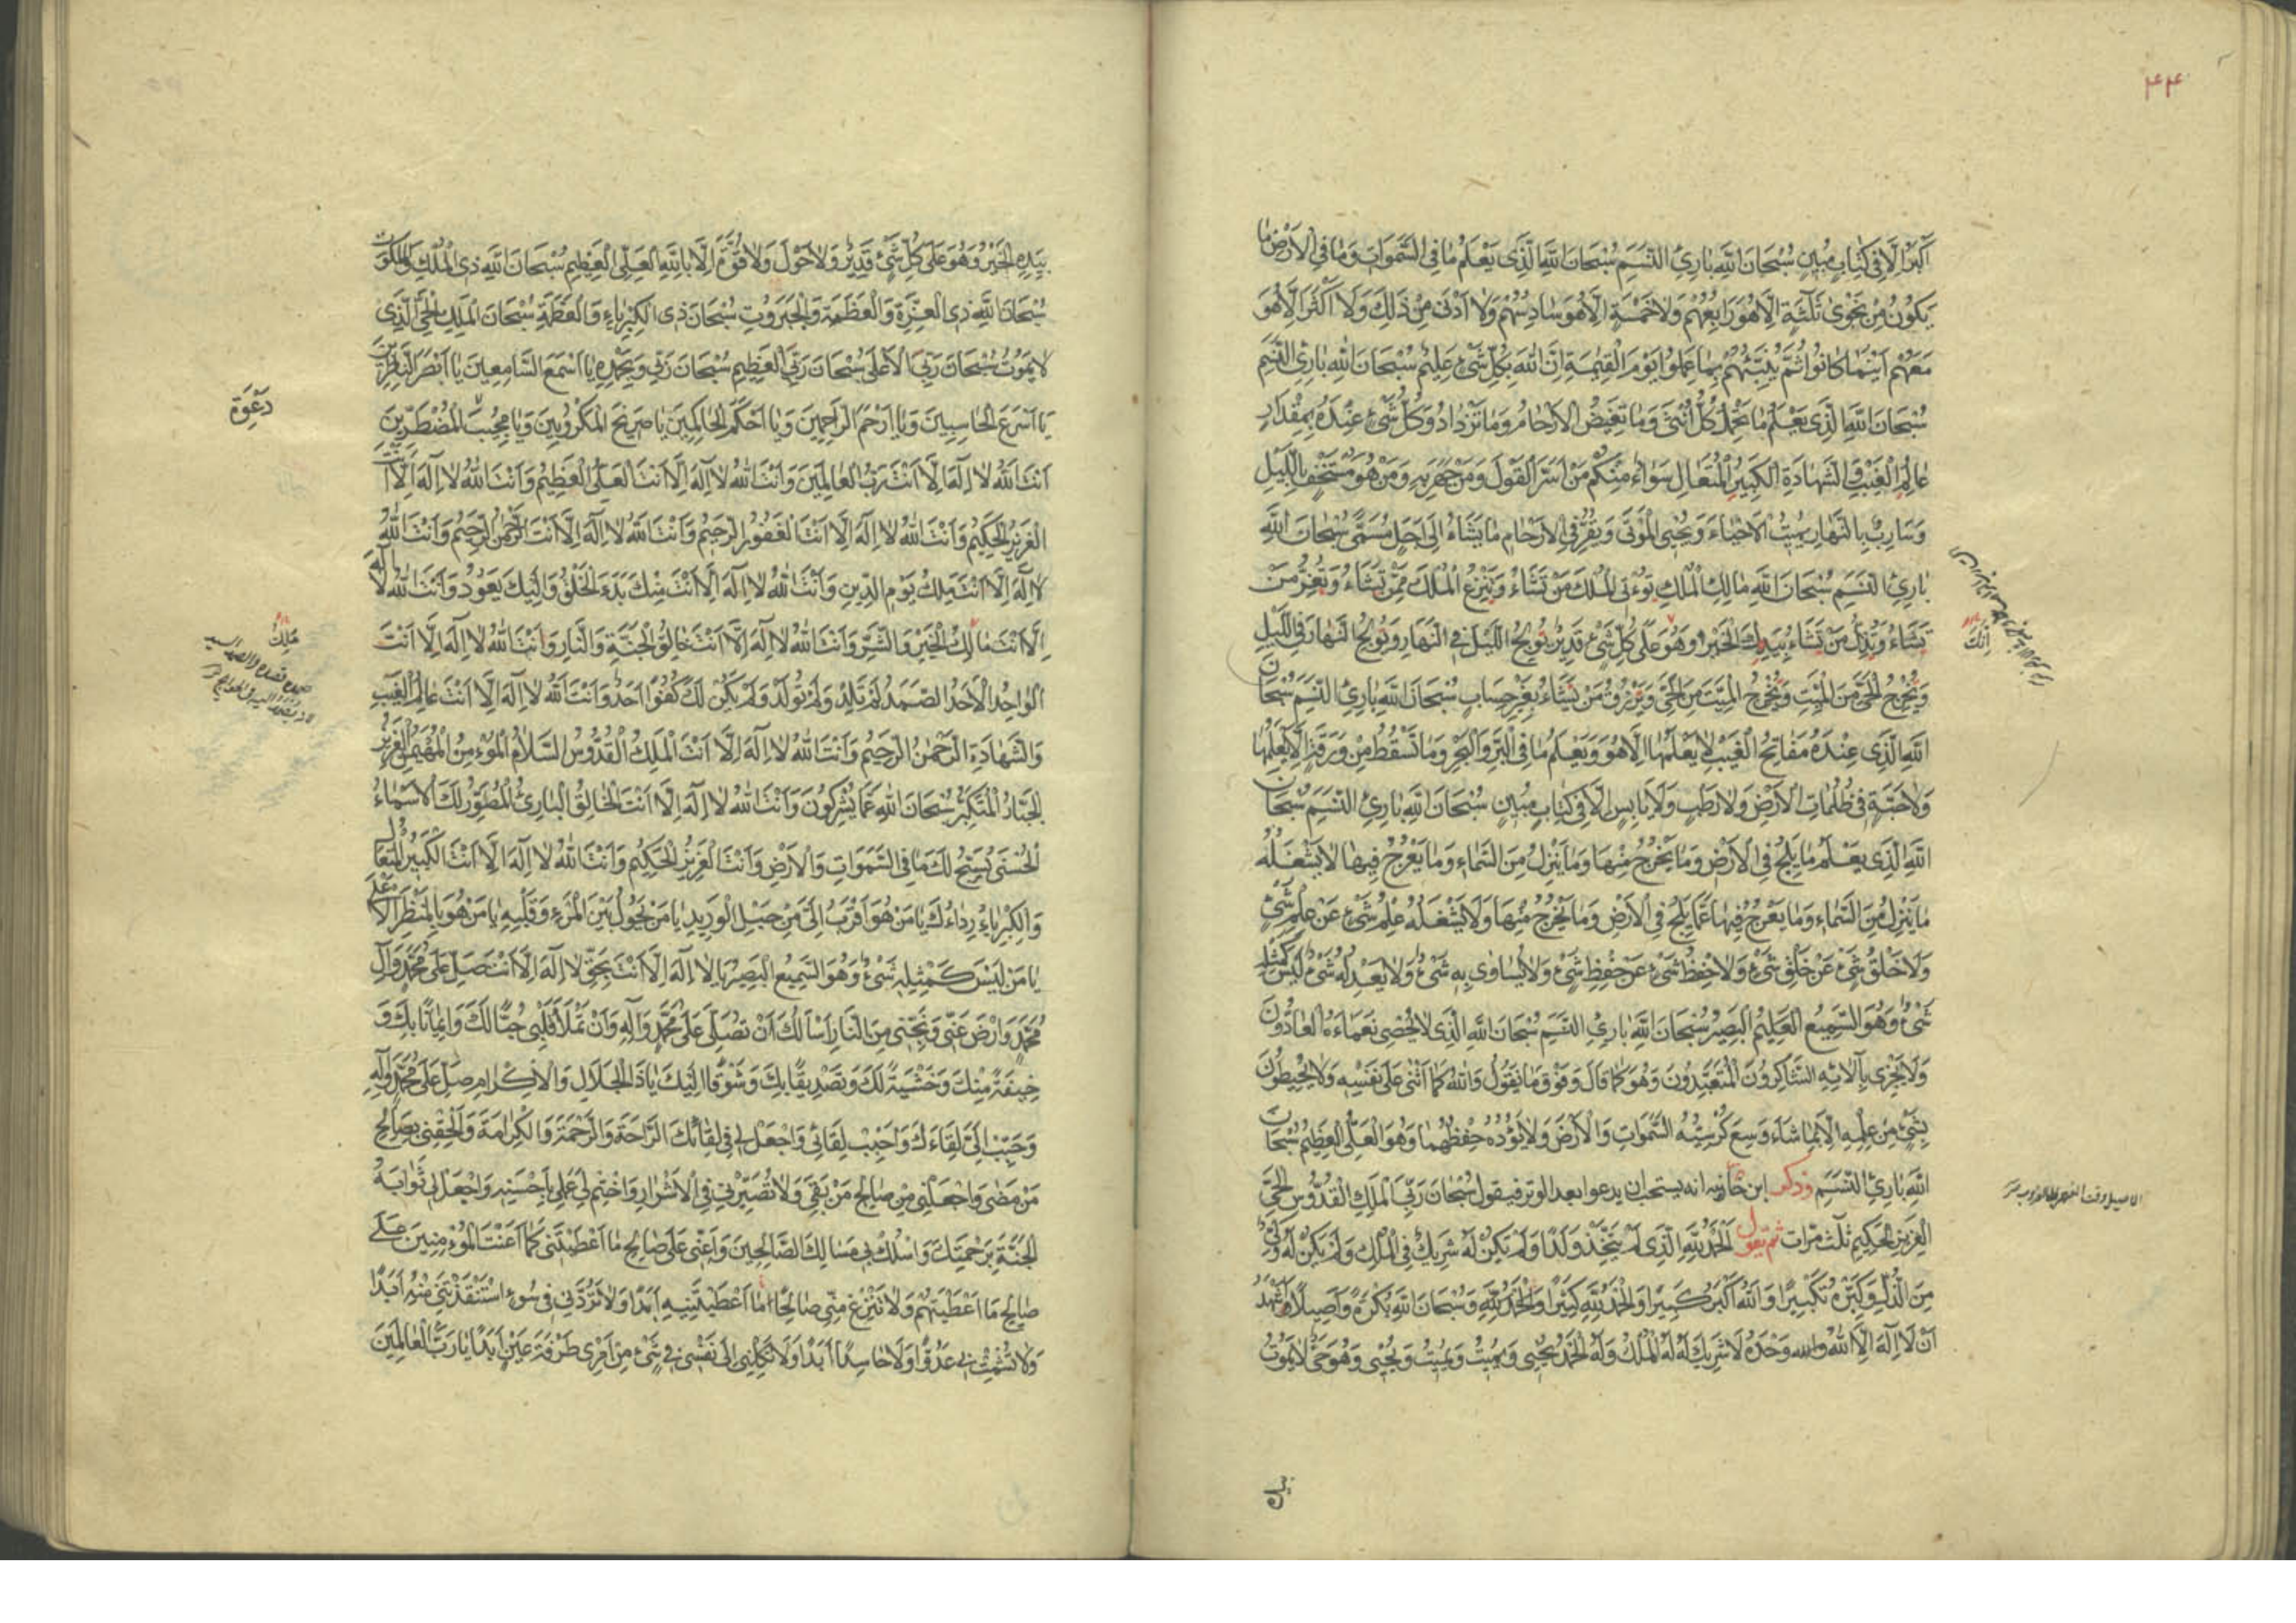 ۴۴
أَكْبَرَ إِلَّا فِي كِتَابٍ مُبِينٍ سُبْحَانَ اللَّهِ بَارِئِ النَّسَمِ سُبْحَانَ اللَّهِ الَّذِي يَعْلَمُ مَا فِي السَّمَوَاتِ وَمَا فِي الْأَرْضِ مَا
يَكُونُ مِنْ نَجْوَى ثَلٰثَةٍ إِلَّا هُوَ رَابِعُهُمْ وَلَا خَمْسَةٍ إِلَّا هُوَ سَادِسُهُمْ وَلَا أَدْنَى مِنْ ذَلِكَ وَلَا أَكْثَرَ إِلَّا هُوَ
مَعَهُمْ أَيْنَمَا كَانُوا ثُمَّ يُنَبِّئُهُمْ بِمَا عَمِلُوا يَوْمَ الْقِيٰمَةِ إِنَّ اللَّهَ بِكُلِّ شَيْءٍ عَلِيمٌ سُبْحَانَ اللَّهِ بَارِئِ النَّسَمِ
سُبْحَانَ اللَّهِ الَّذِي يَعْلَمُ مَا تَحْمِلُ كُلُّ أُنْثَى وَمَا تَغِيضُ الْأَرْحَامُ وَمَا تَزْدَادُ وَكُلُّ شَيْءٍ عِنْدَهُ بِمِقْدَارٍ
عَالِمُ الْغَيْبِ وَالشَّهَادَةِ الْكَبِيرُ الْمُتَعَالِ سَوَاءٌ مِنْكُمْ مَنْ أَسَرَّ الْقَوْلَ وَمَنْ جَهَرَ بِهِ وَمَنْ هُوَ مُسْتَخْفٍ بِاللَّيْلِ
وَسَارِبٌ بِالنَّهَارِ يُمِيتُ الْأَحْيَاءَ وَيُحْيِي الْمَوْتَى وَيُقِرُّ فِي الْأَرْحَامِ مَا يَشَاءُ إِلَى أَجَلٍ مُسَمًّى سُبْحَانَ اللَّهِ
بَارِئِ النَّسَمِ سُبْحَانَ اللَّهِ مَالِكِ الْمُلْكِ تُؤْتِي الْمُلْكَ مَنْ تَشَاءُ وَتَنْزِعُ الْمُلْكَ مِمَّنْ تَشَاءُ وَتُعِزُّ مَنْ
تَشَاءُ وَتُذِلُّ مَنْ تَشَاءُ بِيَدِكَ الْخَيْرُ وَهُوَ عَلَى كُلِّ شَيْءٍ قَدِيرٌ تُولِجُ اللَّيْلَ فِي النَّهَارِ وَتُولِجُ النَّهَارَ فِي اللَّيْلِ
إِنَّكَ
وَتُخْرِجُ الْحَيَّ مِنَ الْمَيِّتِ وَتُخْرِجُ الْمَيِّتَ مِنَ الْحَيِّ وَتَرْزُقُ مَنْ تَشَاءُ بِغَيْرِ حِسَابٍ سُبْحَانَ اللَّهِ بَارِئِ النَّسَمِ سُبْحَانَ
اللَّهِ الَّذِي عِنْدَهُ مَفَاتِحُ الْغَيْبِ لَا يَعْلَمُهَا إِلَّا هُوَ وَيَعْلَمُ مَا فِي الْبَرِّ وَالْبَحْرِ وَمَا تَسْقُطُ مِنْ وَرَقَةٍ إِلَّا يَعْلَمُهَا
وَلَا حَبَّةٍ فِي ظُلُمَاتِ الْأَرْضِ وَلَا رَطْبٍ وَلَا يَابِسٍ إِلَّا فِي كِتَابٍ مُبِينٍ سُبْحَانَ اللَّهِ بَارِئِ النَّسَمِ سُبْحَانَ
اللَّهِ الَّذِي يَعْلَمُ مَا يَلِجُ فِي الْأَرْضِ وَمَا يَخْرُجُ مِنْهَا وَمَا يَنْزِلُ مِنَ السَّمَاءِ وَمَا يَعْرُجُ فِيهَا لَا يَشْغَلُهُ
مَا يَنْزِلُ مِنَ السَّمَاءِ وَمَا يَعْرُجُ فِيهَا عَمَّا يَلِجُ فِي الْأَرْضِ وَمَا يَخْرُجُ مِنْهَا وَلَا يَشْغَلُهُ عِلْمُ شَيْءٍ عَنْ عِلْمِ شَيْءٍ
وَلَا خَلْقُ شَيْءٍ عَنْ خَلْقِ شَيْءٍ وَلَا حِفْظُ شَيْءٍ عَنْ حِفْظِ شَيْءٍ وَلَا يُسَاوِي بِهِ شَيْءٌ وَلَا يَعْدِلُهُ شَيْءٌ لَيْسَ كَمِثْلِهِ
شَيْءٌ وَهُوَ السَّمِيعُ الْعَلِيمُ الْبَصِيرُ سُبْحَانَ اللَّهِ بَارِئِ النَّسَمِ سُبْحَانَ اللَّهِ الَّذِي لَا يُحْصِي نَعْمَاءَهُ الْعَادُّونَ
وَلَا يَجْزِي بِآلَائِهِ الشَّاكِرُونَ الْمُتَعَبِّدُونَ وَهُوَ كَمَا قَالَ وَفَوْقَ مَا نَقُولُ وَاللَّهُ كَمَا أَثْنَى عَلَى نَفْسِهِ وَلَا يُحِيطُونَ
بِشَيْءٍ مِنْ عِلْمِهِ إِلَّا بِمَا شَاءَ وَسِعَ كُرْسِيُّهُ السَّمَوَاتِ وَالْأَرْضَ وَلَا يَؤُدُهُ حِفْظُهُمَا وَهُوَ الْعَلِيُّ الْعَظِيمُ سُبْحَانَ
اللَّهِ بَارِئِ النَّسَمِ وذكر ابن خانبه انه يستحب ان يدعو ا بعد الوتر فيقول سُبْحَانَ رَبِّيَ الْمَلِكِ الْقُدُّوسِ الْحَيِّ
الْعَزِيزِ الْحَكِيمِ ثلث مرّات ثم يقول الْحَمْدُ لِلَّهِ الَّذِي لَمْ يَتَّخِذْ وَلَدًا وَلَمْ يَكُنْ لَهُ شَرِيكٌ فِي الْمُلْكِ وَلَمْ يَكُنْ لَهُ وَلِيٌّ
مِنَ الذُّلِّ وَكَبِّرْهُ تَكْبِيرًا وَاللَّهُ أَكْبَرُ كَبِيرًا وَالْحَمْدُ لِلَّهِ كَثِيرًا وَالْحَمْدُ لِلَّهِ وَسُبْحَانَ اللَّهِ بُكْرَةً وَأَصِيلًا وَأَشْهَدُ
أَنْ لَا إِلَهَ إِلَّا اللَّهُ والله وَحْدَهُ لَا شَرِيكَ لَهُ لَهُ الْمُلْكُ وَلَهُ الْحَمْدُ يُحْيِي وَيُمِيتُ وَيُمِيتُ وَيُحْيِي وَهُوَ حَيٌّ لَا يَمُوتُ
بِيَدِهِ الْخَيْرُ وَهُوَ عَلَى كُلِّ شَيْءٍ قَدِيرٌ وَلَا حَوْلَ وَلَا قُوَّةَ إِلَّا بِاللَّهِ الْعَلِيِّ الْعَظِيمِ سُبْحَانَ اللَّهِ ذِي الْمُلْكِ وَالْمَلَكُوتِ
سُبْحَانَ اللَّهِ ذِي الْعِزَّةِ وَالْعَظَمَةِ وَالْجَبَرُوتِ سُبْحَانَ ذِي الْكِبْرِيَاءِ وَالْعَظَمَةِ سُبْحَانَ الْمَلِكِ الْحَيِّ الَّذِي
لَا يَمُوتُ سُبْحَانَ رَبِّيَ الْأَعْلَى سُبْحَانَ رَبِّيَ الْعَظِيمِ سُبْحَانَ رَبِّي وَبِحَمْدِهِ يَا أَسْمَعَ السَّامِعِينَ يَا أَبْصَرَ النَّاظِرِينَ
يَا أَسْرَعَ الْحَاسِبِينَ وَيَا أَرْحَمَ الرَّاحِمِينَ وَيَا أَحْكَمَ الْحَاكِمِينَ يَا صَرِيخَ الْمَكْرُوبِينَ وَيَا مُجِيبَ الْمُضْطَرِّينَ
دَعْوَةِ
أَنْتَ اللَّهُ لَا إِلَهَ إِلَّا أَنْتَ رَبُّ الْعَالَمِينَ وَأَنْتَ اللَّهُ لَا إِلَهَ إِلَّا أَنْتَ الْعَلِيُّ الْعَظِيمُ وَأَنْتَ اللَّهُ لَا إِلَهَ إِلَّا أَنْتَ
الْعَزِيزُ الْحَكِيمُ وَأَنْتَ اللَّهُ لَا إِلَهَ إِلَّا أَنْتَ الْغَفُورُ الرَّحِيمُ وَأَنْتَ اللَّهُ لَا إِلَهَ إِلَّا أَنْتَ الرَّحْمٰنُ الرَّحِيمُ وَأَنْتَ اللَّهُ
لَا إِلَهَ إِلَّا أَنْتَ مَلِكُ يَوْمِ الدِّينِ وَأَنْتَ اللَّهُ لَا إِلَهَ إِلَّا أَنْتَ مِنْكَ بَدْءُ الْخَلْقِ وَإِلَيْكَ يَعُودُ وَأَنْتَ اللَّهُ لَا إِلَهَ
إِلَّا أَنْتَ مَالِكُ الْخَيْرِ وَالشَّرِّ وَأَنْتَ اللَّهُ لَا إِلَهَ إِلَّا أَنْتَ خَالِقُ الْجَنَّةِ وَالنَّارِ وَأَنْتَ اللَّهُ لَا إِلَهَ إِلَّا أَنْتَ
الْوَاحِدُ الْأَحَدُ الصَّمَدُ لَمْ تَلِدْ وَلَمْ تُولَدْ وَلَمْ يَكُنْ لَكَ كُفُوًا أَحَدٌ وَأَنْتَ اللَّهُ لَا إِلَهَ إِلَّا أَنْتَ عَالِمُ الْغَيْبِ
وَالشَّهَادَةِ الرَّحْمٰنُ الرَّحِيمُ وَأَنْتَ اللَّهُ لَا إِلَهَ إِلَّا أَنْتَ الْمَلِكُ الْقُدُّوسُ السَّلَامُ الْمُؤْمِنُ الْمُهَيْمِنُ الْعَزِيزُ
الْجَبَّارُ الْمُتَكَبِّرُ سُبْحَانَ اللَّهِ عَمَّا يُشْرِكُونَ وَأَنْتَ اللَّهُ لَا إِلَهَ إِلَّا أَنْتَ الْخَالِقُ الْبَارِئُ الْمُصَوِّرُ لَكَ الْأَسْمَاءُ
الْحُسْنَى يُسَبِّحُ لَكَ مَا فِي السَّمَوَاتِ وَالْأَرْضِ وَأَنْتَ الْعَزِيزُ الْحَكِيمُ وَأَنْتَ اللَّهُ لَا إِلَهَ إِلَّا أَنْتَ الْكَبِيرُ الْمُتَعَالُ
وَالْكِبْرِيَاءُ رِدَاءُكَ يَا مَنْ هُوَ أَقْرَبُ إِلَيَّ مِنْ حَبْلِ الْوَرِيدِ يَا مَنْ يَحُولُ بَيْنَ الْمَرْءِ وَقَلْبِهِ يَا مَنْ هُوَ بِالْمَنْظَرِ الْأَعْلَى
يَا مَنْ لَيْسَ كَمِثْلِهِ شَيْءٌ وَهُوَ السَّمِيعُ الْبَصِيرُ يَا لَا إِلَهَ إِلَّا أَنْتَ بِحَقِّ لَا إِلَهَ إِلَّا أَنْتَ صَلِّ عَلَى مُحَمَّدٍ وَآلِ
مُحَمَّدٍ وَارْضَ عَنِّي وَنَجِّنِي مِنَ النَّارِ أَسْأَلُكَ أَنْ تُصَلِّيَ عَلَى مُحَمَّدٍ وَآلِهِ وَأَنْ تَمْلَأَ قَلْبِي حُبًّا لَكَ وَإِيمَانًا بِكَ وَ
خِيفَةً مِنْكَ وَخَشْيَةً لَكَ وَتَصْدِيقًا بِكَ وَشَوْقًا إِلَيْكَ يَا ذَا الْجَلَالِ وَالْإِكْرَامِ صَلِّ عَلَى مُحَمَّدٍ وَآلِهِ
وَحَبِّبْ إِلَيَّ لِقَاءَكَ وَأَحْبِبْ لِقَائِي وَاجْعَلْ لِي فِي لِقَائِكَ الرَّاحَةَ وَالرَّحْمَةَ وَالْكَرَامَةَ وَأَلْحِقْنِي بِصَالِحِ
مَنْ مَضَى وَاجْعَلْنِي مِنْ صَالِحِ مَنْ بَقِيَ وَلَا تُصَيِّرْنِي فِي الْأَشْرَارِ وَاخْتِمْ لِي عَمَلِي بِأَحْسَنِهِ وَاجْعَلْ لِي ثَوَابَهُ
الْجَنَّةَ بِرَحْمَتِكَ وَاسْلُكْ بِي مَسَالِكَ الصَّالِحِينَ وَأَعِنِّي عَلَى صَالِحِ مَا أَعْطَيْتَنِي كَمَا أَعَنْتَ الْمُؤْمِنِينَ عَلَى
صَالِحِ مَا أَعْطَيْتَهُمْ وَلَا تَنْزِعْ مِنِّي صَالِحًا مَا أَعْطَيْتَنِيهِ أَبَدًا وَلَا تَرُدَّنِي فِي سُوءٍ اسْتَنْقَذْتَنِي مِنْهُ أَبَدًا
وَلَا تُشْمِتْ بِي عَدُوًّا وَلَا حَاسِدًا أَبَدًا وَلَا تَكِلْنِي إِلَى نَفْسِي فِي شَيْءٍ مِنْ أَمْرِي طَرْفَةَ عَيْنٍ أَبَدًا يَا رَبَّ الْعَالَمِينَ